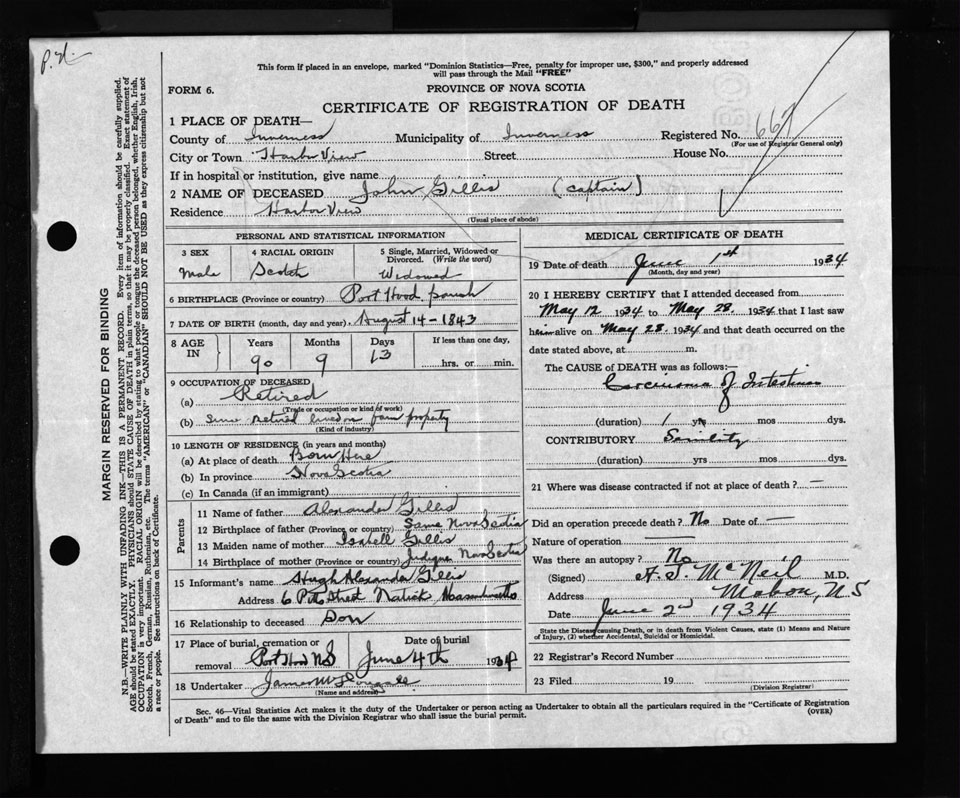 P.N.
This form if placed in an envelope, marked "Dominion Statistics—Free, penalty for improper use, $300," and properly addressed
will pass through the Mail "FREE"
FORM 6.
PROVINCE OF NOVA SCOTIA
CERTIFICATE OF REGISTRATION OF DEATH
1 PLACE OF DEATH—
County of Inverness Municipality of Inverness Registered No. 667
(For use of Registrar General only)
City or Town Harbor View Street House No.
If in hospital or institution, give name
2 NAME OF DECEASED John Gillis (Captain)
Residence Harbor View
(Usual place of abode)
PERSONAL AND STATISTICAL INFORMATION
3 SEX 4 RACIAL ORIGIN 5 Single, Married, Widowed or
Divorced. (Write the word)
Male Scotch Widowed
6 BIRTHPLACE (Province or country) Port Hood parish
7 DATE OF BIRTH (month, day and year) August 14-1843
8 AGE IN Years Months Days If less than one day,
90 9 13 hrs. or min.
9 OCCUPATION OF DECEASED
(a) Retired
(Trade or occupation or kind of work)
(b) Since retired lived on farm property
(Kind of industry)
10 LENGTH OF RESIDENCE (in years and months)
(a) At place of death Born Here
(b) In province Nova Scotia
(c) In Canada (if an immigrant)
Parents
11 Name of father Alexander Gillis
12 Birthplace of father (Province or country) Same Nova Scotia
13 Maiden name of mother Isabell Gillis
14 Birthplace of mother (Province or country) Judique Nova Scotia
15 Informant's name Hugh Alexander Gillis
Address 6 Pitts Street Natick Massachusetts
16 Relationship to deceased Son
17 Place of burial, cremation or removal Date of burial
Port Hood NS June 4th 1934
18 Undertaker James
(Name and address)
MEDICAL CERTIFICATE OF DEATH
19 Date of death June 1st 1934
(Month, day and year)
20 I HEREBY CERTIFY that I attended deceased from
May 12 1934 to May 28. 1934 that I last saw
him alive on May 28. 1934 and that death occurred on the
date stated above, at m.
The CAUSE OF DEATH was as follows:—
Carcinoma of Intestines
(duration) 1 yrs mos dys.
CONTRIBUTORY Senility
(duration) yrs mos dys.
21 Where was disease contracted if not at place of death? —
Did an operation precede death? No Date of —
Nature of operation —
Was there an autopsy? No
(Signed) A. J. McNeil M.D.
Address Mabou, NS
Date June 2nd 1934
State the Disease causing Death, or in death from Violent Causes, state (1) Means and Nature
of Injury, (2) whether Accidental, Suicidal or Homicidal.
22 Registrar's Record Number
23 Filed 19
(Division Registrar)
Sec. 46—Vital Statistics Act makes it the duty of the Undertaker or person acting as Undertaker to obtain all the particulars required in the "Certificate of Registration
of Death" and to file the same with the Division Registrar who shall issue the burial permit.
(OVER)
MARGIN RESERVED FOR BINDING
N.B.—WRITE PLAINLY WITH UNFADING INK—THIS IS A PERMANENT RECORD. Every item of information should be carefully supplied.
AGE should be stated EXACTLY. PHYSICIANS should STATE CAUSE OF DEATH in plain terms, so that it may be properly classified. Exact statement of
OCCUPATION is very important. RACIAL ORIGIN will be described by stating to what people or tongue the deceased person belonged, whether English, Irish,
Scotch, French, German, Russian, Ruthenian, etc. The terms "AMERICAN" or "CANADIAN" SHOULD NOT BE USED as they express citizenship but not
a race or people. See instructions on back of Certificate.